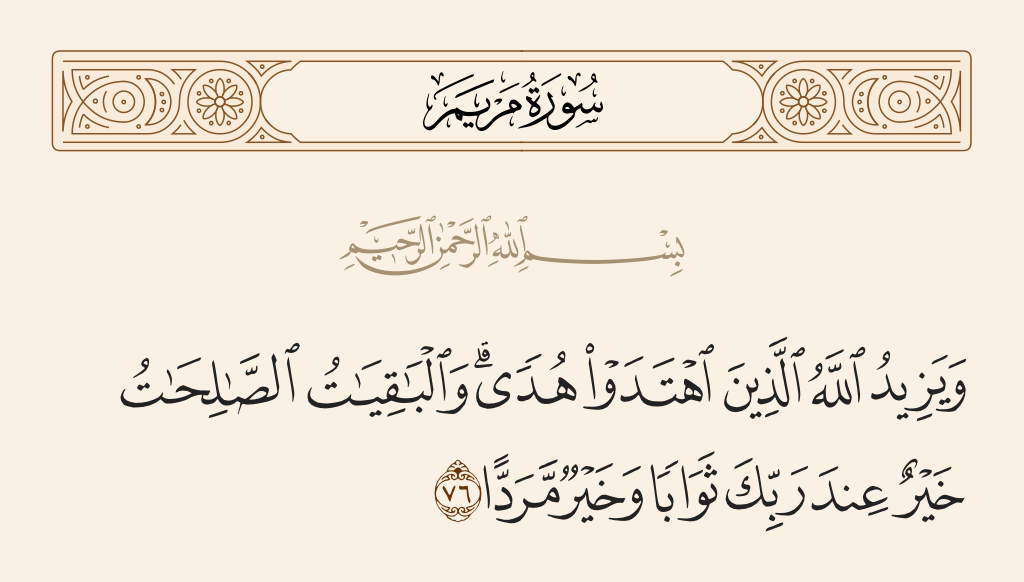 سُورَةُ مَرْيَمَ
بِسْمِ ٱللَّهِ ٱلرَّحْمَٰنِ ٱلرَّحِيمِ
وَيَزِيدُ ٱللَّهُ ٱلَّذِينَ ٱهْتَدَوْا۟ هُدًى ۗ وَٱلْبَـٰقِيَـٰتُ ٱلصَّـٰلِحَـٰتُ
خَيْرٌ عِندَ رَبِّكَ ثَوَابًا وَخَيْرٌ مَّرَدًّا ٧٦